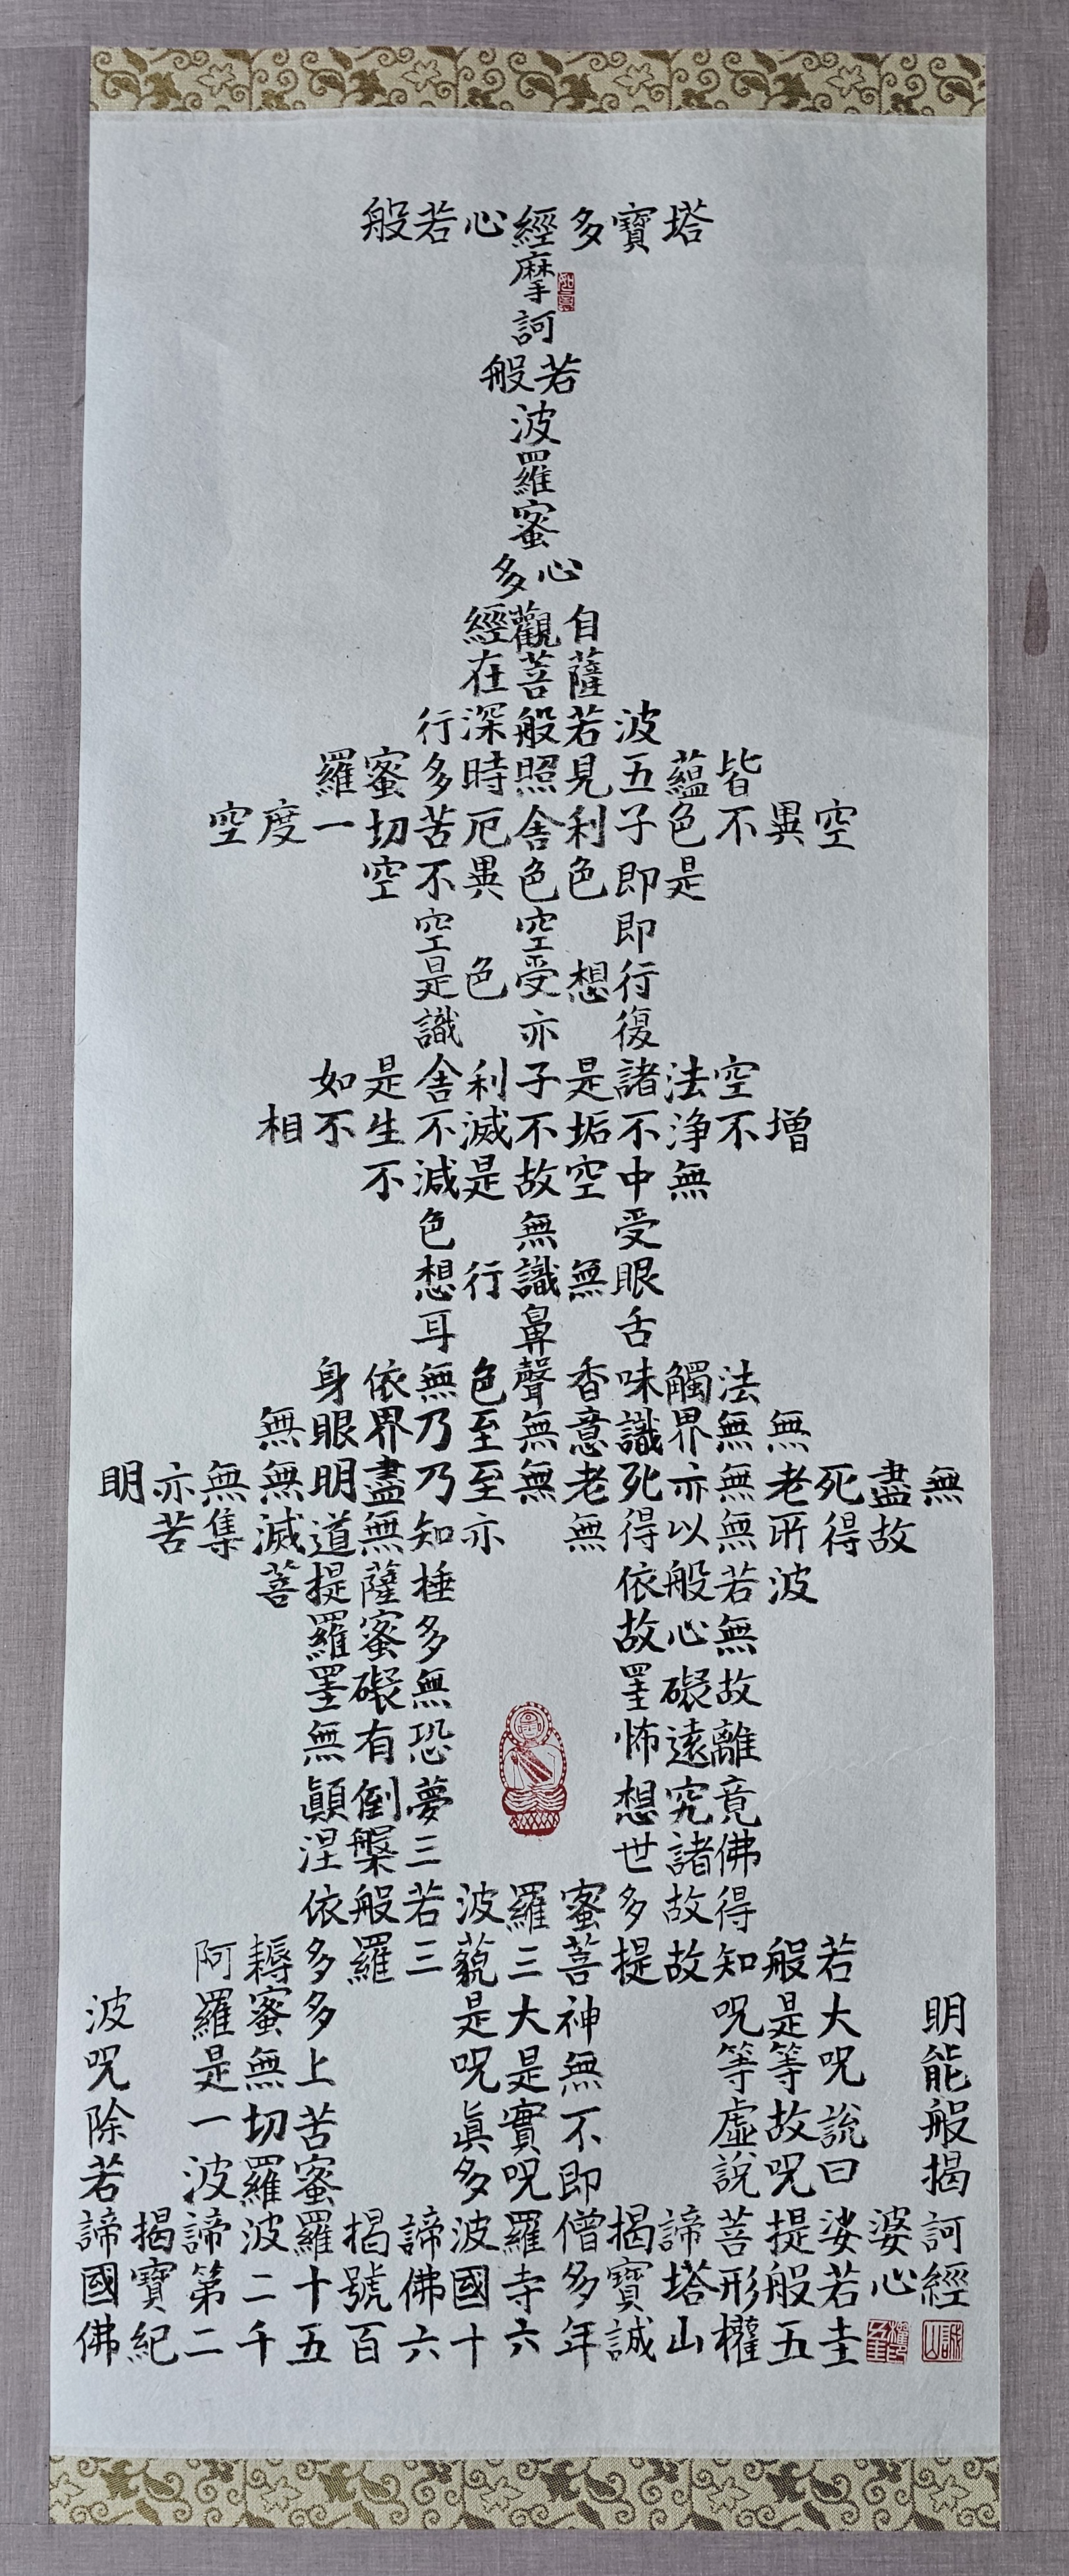 般若心經多寶塔
摩
訶
般若
波
羅
蜜
多心
經觀自
在菩薩
行深般若波
羅蜜多時照見五蘊皆
空度一切苦厄舍利子色不異空
空不異色色即是
空空即
是色受想行
識亦復
如是舍利子是諸法空
相不生不滅不垢不淨不增
不減是故空中無
色無受
想行識無眼
耳鼻舌
身依無色聲香味觸法
無眼界乃至無意識界無無
明亦無無明盡乃至無老死亦無老死盡無
苦集滅道無知亦無得以無所得故
菩提薩捶依般若波
羅蜜多故心無
罣礙無罣礙故
無有恐怖遠離
顚倒夢想究竟
涅槃三世諸佛
依般若波羅蜜多故得
阿耨多羅三藐三菩提故知般若
波羅蜜多是大神呪是大明
呪是無上呪是無等等呪能
除一切苦眞實不虛故說般
若波羅蜜多呪即說呪曰揭
諦揭諦波羅揭諦波羅僧揭諦菩提娑婆訶
國寶第二十號佛國寺多寶塔形般若心經
佛紀二千五百六十六年誠山權五圭